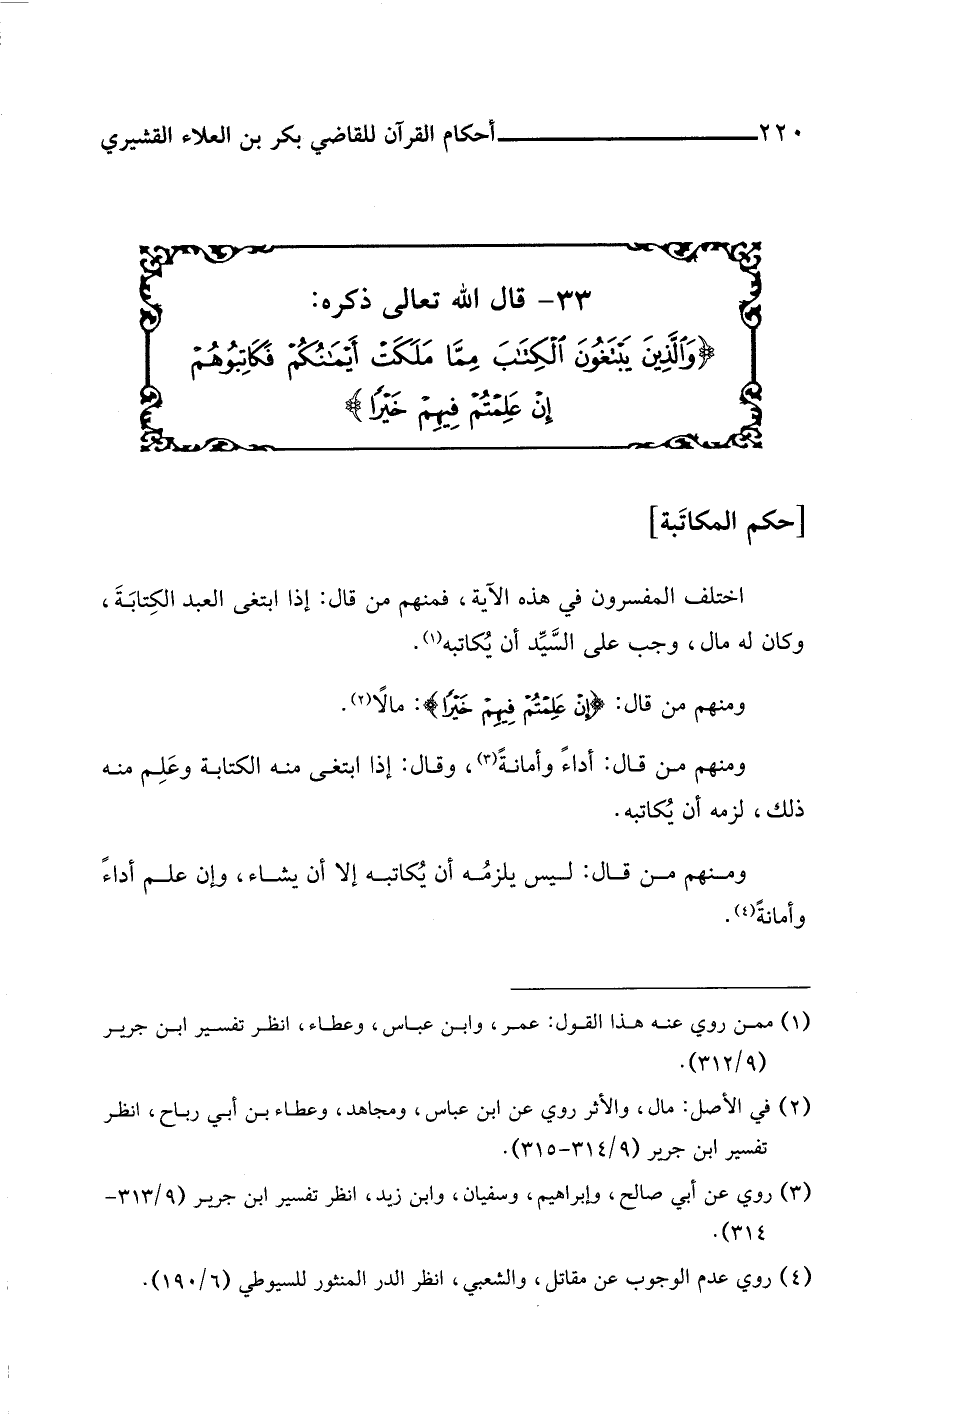 ٢٢٠ أحكام القرآن للقاضي بكر بن العلاء القشيري
٣٣- قال الله تعالى ذكره:
﴿وَٱلَّذِينَ يَبْتَغُونَ ٱلْكِتَٰبَ مِمَّا مَلَكَتْ أَيْمَٰنُكُمْ فَكَاتِبُوهُمْ
إِنْ عَلِمْتُمْ فِيهِمْ خَيْرًا﴾
[حكم المكاتَبة]
اختلف المفسرون في هذه الآية، فمنهم من قال: إذا ابتغى العبد الكِتابَةَ،
وكان له مال، وجب على السَّيِّد أن يُكاتبه(١).
ومنهم من قال: ﴿إِنْ عَلِمْتُمْ فِيهِمْ خَيْرًا﴾: مالًا(٢).
ومنهم من قال: أداءً وأمانةً(٣)، وقال: إذا ابتغى منه الكتابة وعَلِم منه
ذلك، لزمه أن يُكاتبه.
ومنهم من قال: ليس يلزمُه أن يُكاتبه إلا أن يشاء، وإن علم أداءً
وأمانةً(٤).
(١) ممن روي عنه هذا القول: عمر، وابن عباس، وعطاء، انظر تفسير ابن جرير
(٣١٢/٩).
(٢) في الأصل: مال، والأثر روي عن ابن عباس، ومجاهد، وعطاء بن أبي رباح، انظر
تفسير ابن جرير (٣١٤/٩-٣١٥).
(٣) روي عن أبي صالح، وإبراهيم، وسفيان، وابن زيد، انظر تفسير ابن جرير (٣١٣/٩-
٣١٤).
(٤) روي عدم الوجوب عن مقاتل، والشعبي، انظر الدر المنثور للسيوطي (١٩٠/٦).